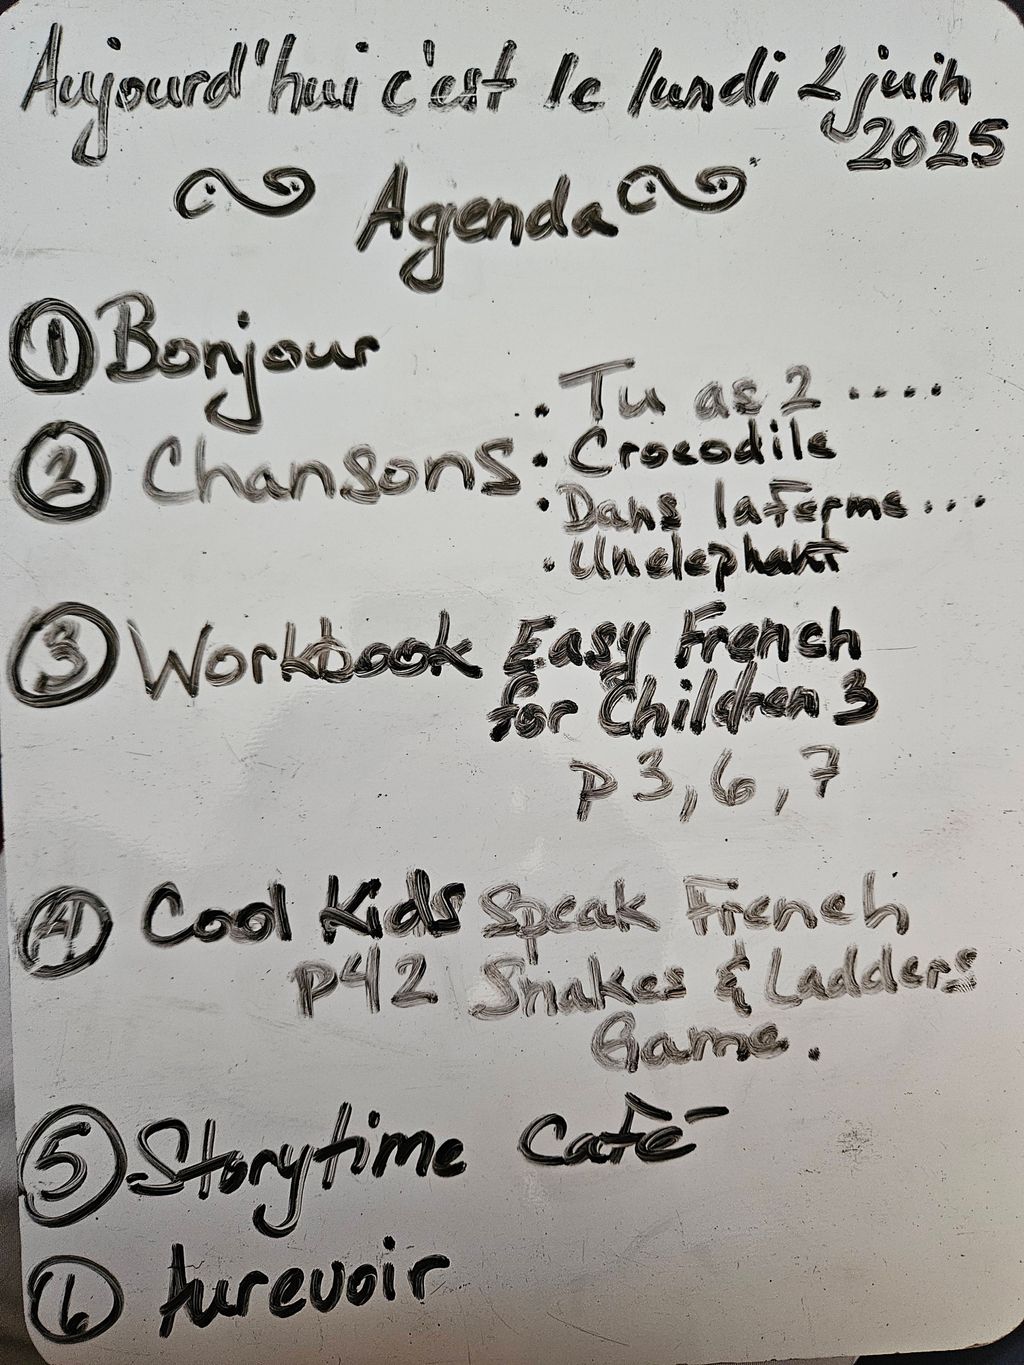 Aujourd'hui c'est le lundi 2 juin
2025
Agenda
1 Bonjour
2 Chansons
• Tu as 2 ....
• Crocodile
• Dans la Ferme ...
• Un elephant
3 Workbook Easy French
for Children 3
p 3, 6, 7
4 Cool Kids Speak French
p42 Snakes & Ladders
Game.
5 Storytime Café
6 Aurevoir